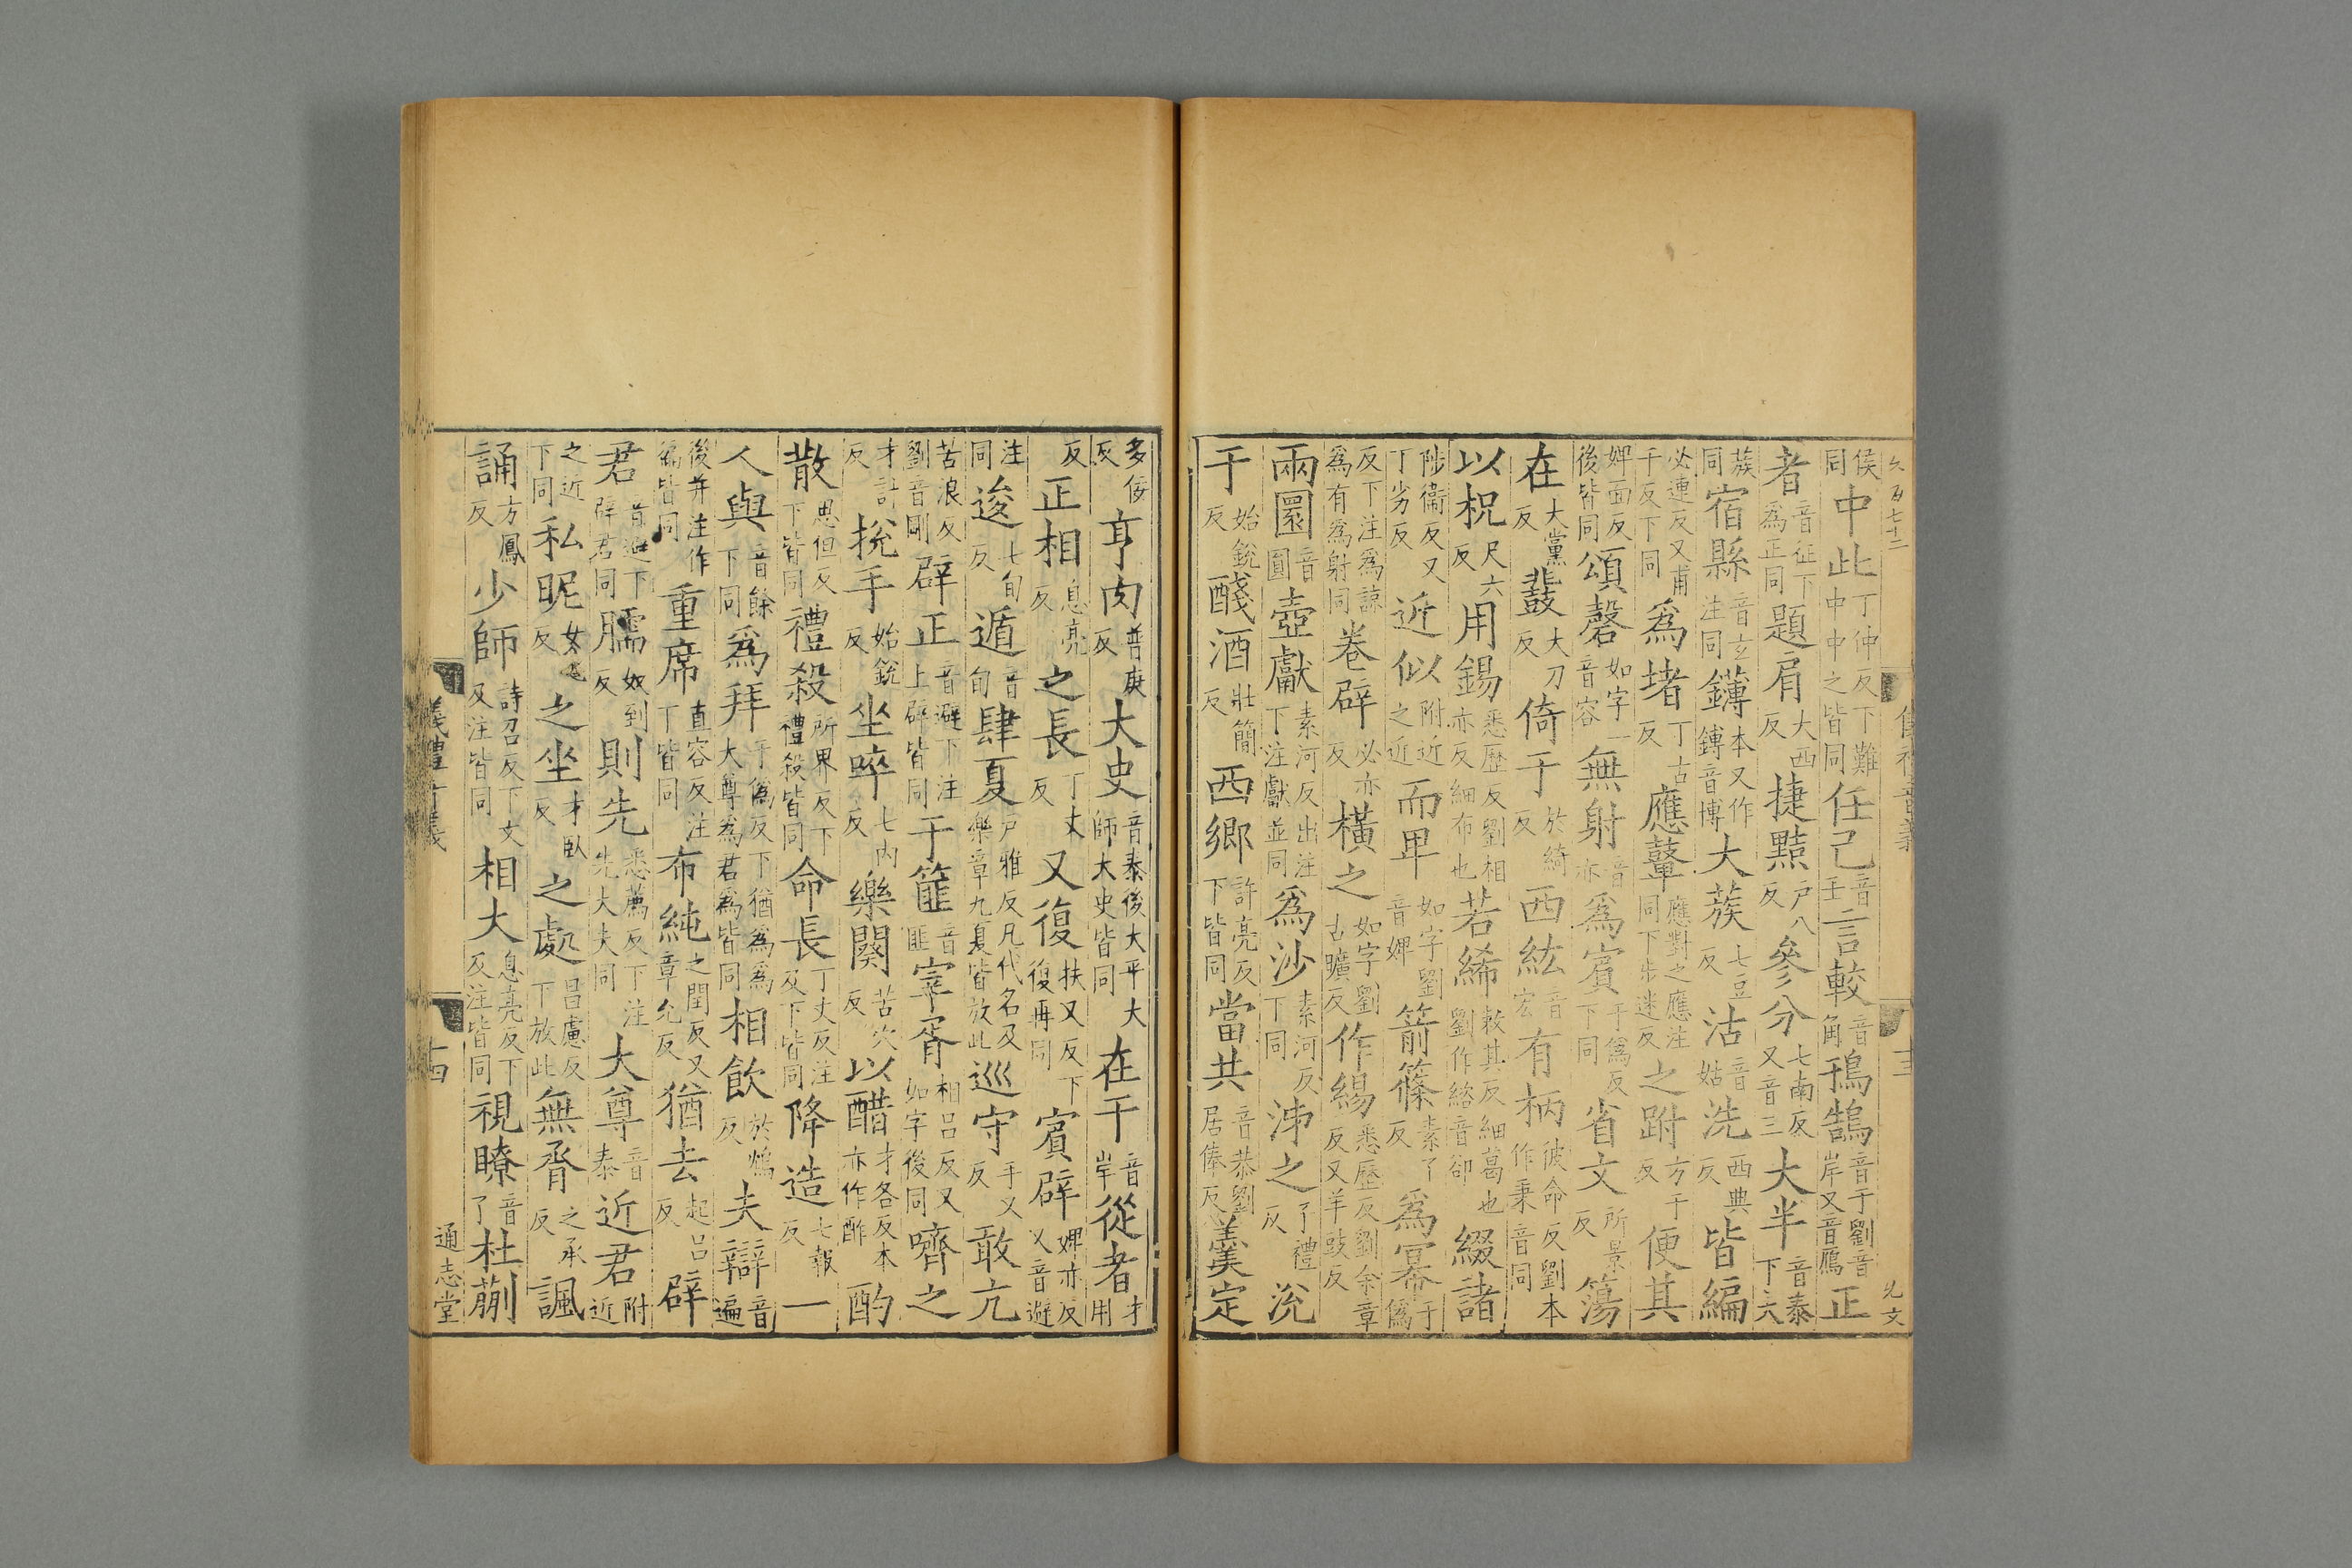 侯同中此丁仲反下難中中之皆同任己音壬言較音角鳱鵠音干劉音岸又音鴈正
者音征下為正同題肩大西反捷黠戶八反參分七南反又音三大半音泰下大泰同
蔟同宿縣音玄注同鑮本又作鎛音博大蔟七豆反沽音姑洗西典反皆編
必連反又甫千反下同為堵丁古反應鼙應對之應注同下步迷反之跗方于反便其
婢面反後皆同頌磬如字一音容無射音亦為賓于偽反下同省文所景反簜
在大黨反鼗大刀反倚于於綺反西紘音宏有柄彼命反劉本作秉音同
以柷尺六反用錫悉歷反劉相亦反細布也若絺敕其反細葛也劉作綌音卻綴諸
陟衞反又丁劣反近似附近之近而卑如字劉音婢箭篠素了反為冪于偽
反下注為諒為有為射同卷辟必亦反橫之如字劉古曠反作緆悉歷反劉余章反又羊豉反
兩圜音圓壺獻素河反出注下注獻並同為沙素河反下同泲之了禮反涗
于始銳反醆酒壯簡反西鄉許亮反下皆同當共音恭劉居俸反羹定
儀禮音義
多佞反亨肉普庚反大史音泰後大平大師大史皆同在干音岸從者才用
反正相息亮反之長丁丈反又復扶又反下復再同賓辟婢亦反又音避
注同逡七旬反遁音旬肆夏戶雅反凡代名及樂章九夏皆放此巡守手又反敢亢
苦浪反劉音剛辟正音避下注上辟皆同于篚音匪宰胥相呂反又如字後同嚌之
才計反挩手始銳反坐啐七內反樂闋苦穴反以醋才各反本亦作酢酌
散思但反下皆同禮殺所界反下禮殺皆同命長丁丈反注及下皆同降造七報反一
人與音餘下同為拜于偽反下猶為為大尊為君為皆同相飲於鴆反夫辯音遍
後并注作徧皆同重席直容反注丁皆同布純之閏反又章允反猶去起呂反辟
君音避下辟君同臑奴到反則先悉薦反下注先大夫同大尊音泰近君附近
之近下同私昵女乙反之坐才臥反之處昌慮反下放此無脀之承反諷
誦方鳳反少師詩召反下文及注皆同相大息亮反下及注皆同視瞭音了杜蒯
通志堂